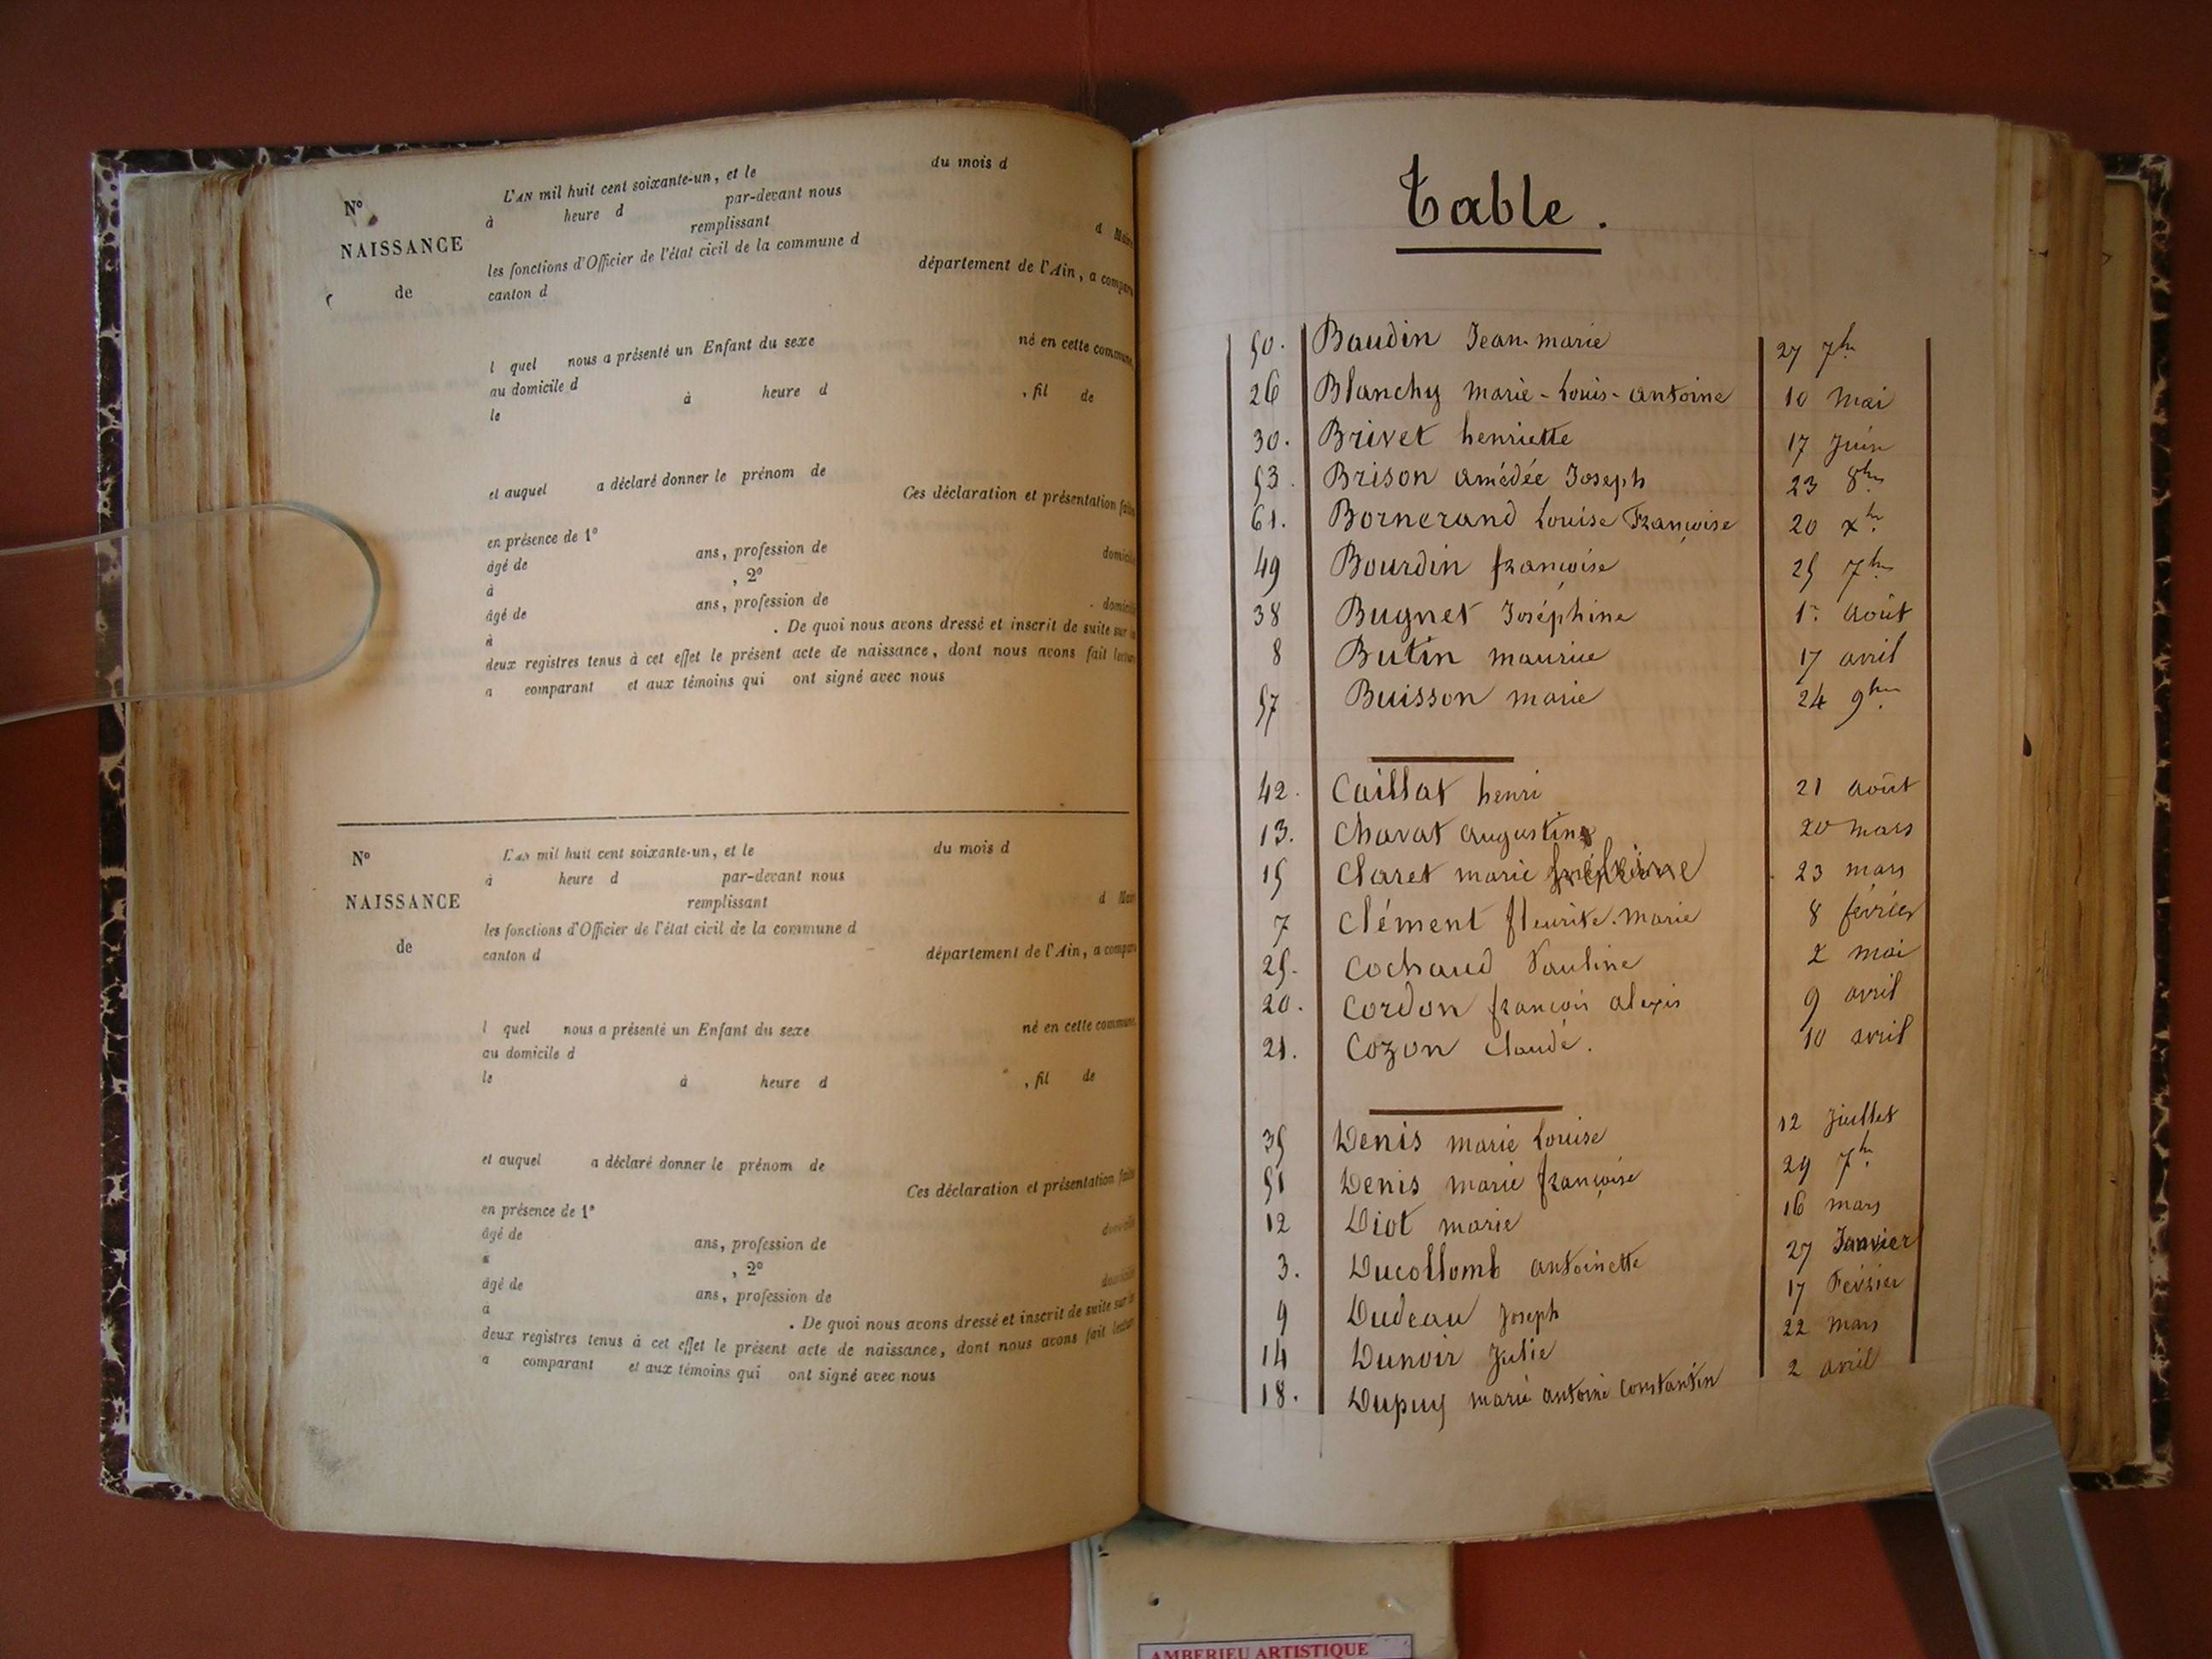 L'AN mil huit cent soixante-un, et le du mois d
N° à heure d par-devant nous
remplissant d Maire
NAISSANCE les fonctions d'Officier de l'état civil de la commune d
de canton d département de l'Ain, a comparu
l quel nous a présenté un Enfant du sexe né en cette commune
au domicile d
le à heure d , fil de
et auquel a déclaré donner le prénom de
Ces déclaration et présentation faites
en présence de 1°
âgé de ans, profession de domicilié
à , 2°
âgé de ans, profession de domicilié
à . De quoi nous avons dressé et inscrit de suite sur les
deux registres tenus à cet effet le présent acte de naissance, dont nous avons fait lecture
a comparant et aux témoins qui ont signé avec nous
N° L'AN mil huit cent soixante-un, et le du mois d
à heure d par-devant nous
NAISSANCE remplissant d Maire
les fonctions d'Officier de l'état civil de la commune d
de canton d département de l'Ain, a comparu
l quel nous a présenté un Enfant du sexe né en cette commune
au domicile d
le à heure d , fil de
et auquel a déclaré donner le prénom de
Ces déclaration et présentation faites
en présence de 1°
âgé de ans, profession de domicilié
à , 2°
âgé de ans, profession de domicilié
à . De quoi nous avons dressé et inscrit de suite sur les
deux registres tenus à cet effet le présent acte de naissance, dont nous avons fait lecture
a comparant et aux témoins qui ont signé avec nous
Table.
50. Baudin Jean-marie 27 7bre
26 Blanchy marie-Louis-antoine 10 mai
30. Brivet henriette 17 Juin
53. Brison amédée Joseph 23 8bre
61. Bornerand Louise Françoise 20 xbre
49 Bourdin françoise 25 7bre
38 Bugnet Joséphine 1er août
8 Butin maurice 17 avril
57 Buisson marie 24 9bre
42. Caillat henri 21 août
13. Chavat augustin 20 mars
15 Claret marie 23 mars
7 Clément fleurite-marie 8 février
25. Cochaud Pauline 2 mai
20. Cordon françois alexis 9 avril
21. Cozon claude. 10 avril
35 Denis marie Louise 12 Juillet
51 Denis marie françoise 29 7bre
12 Diot marie 16 mars
3. Ducollomb antoinette 27 Janvier
9 Dudeau Joseph 17 Février
14 Dunoir Julie 22 mars
18. Dupuy marie antoine constantin 2 avril
AMBERIEU ARTISTIQUE